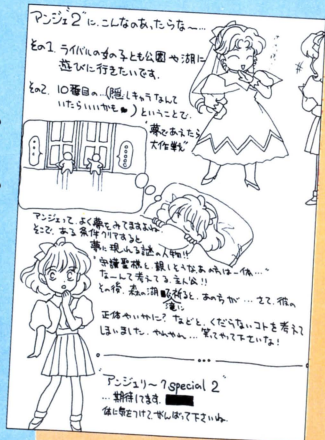 アンジェ"2"に、こんなのあったらな〜…
その1. ライバルの女の子とも公園や湖に
遊びに行きたいです。
その2. 10番目の…(隠しキャラなんて
いたらいいかも)ということで、
夢であえたら
大作戦
アンジェって、よく夢をみてますよね
そこで、ある条件クリアすると
夢に現れる謎の人物!!
"守護聖様と、親しそうなあの方は一体…"
なーんて考えてる、主人公!!
その後、森の湖で祈ると、あの方が… さて、彼の
滝に
正体やいかに? などと、くだらないコトを考えて
しまいました。 笑ってやって下さいな!
"アンジェリーク special 2"
…期待してます。
体に気をつけて、がんばって下さいね